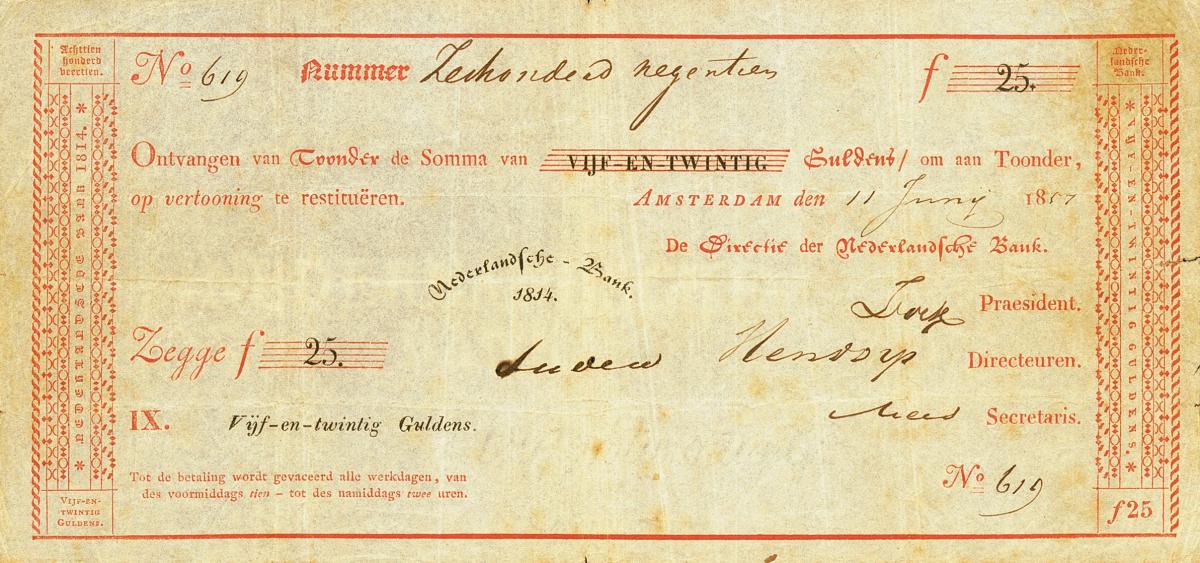 Achttien
honderd
veertien.
NEDERLANDSCHE BANK 1814.
VIJF-EN-
TWINTIG
GULDENS.
No 619 Nummer Zeshonderd negentien f 25.
Ontvangen van Toonder de Somma van VIJF-EN-TWINTIG Guldens/ om aan Toonder,
op vertooning te restituëren. AMSTERDAM den 11 Junij 1857
De Directie der Nederlandsche Bank.
Nederlandsche-Bank.
1814.
Praesident.
Zegge f 25.
Directeuren.
IX. Vijf-en-twintig Guldens.
Secretaris.
Tot de betaling wordt gevaceerd alle werkdagen, van
des voormiddags tien - tot des namiddags twee uren.
No 619
Neder-
landsche
Bank.
VIJF-EN-TWINTIG GULDENS.
f25